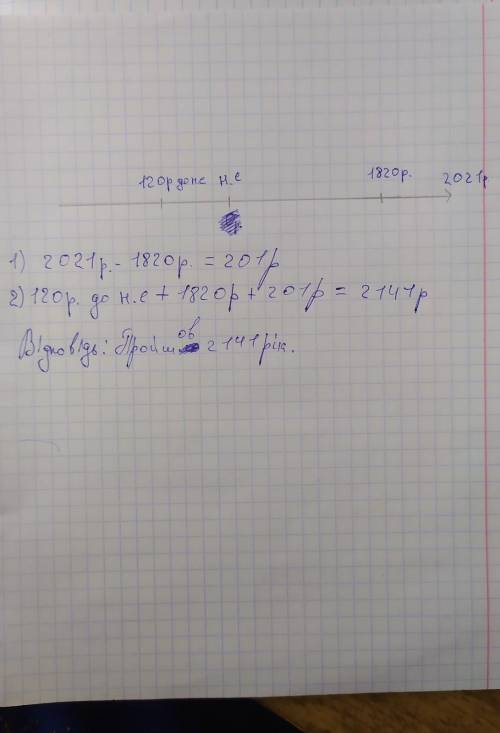 120р до н.е н.е 1820р. 2021р
1) 2021р. - 1820р. = 201р
2) 120р. до н.е + 1820р + 201р = 2141р
Відповідь: Пройшов 2141рік.